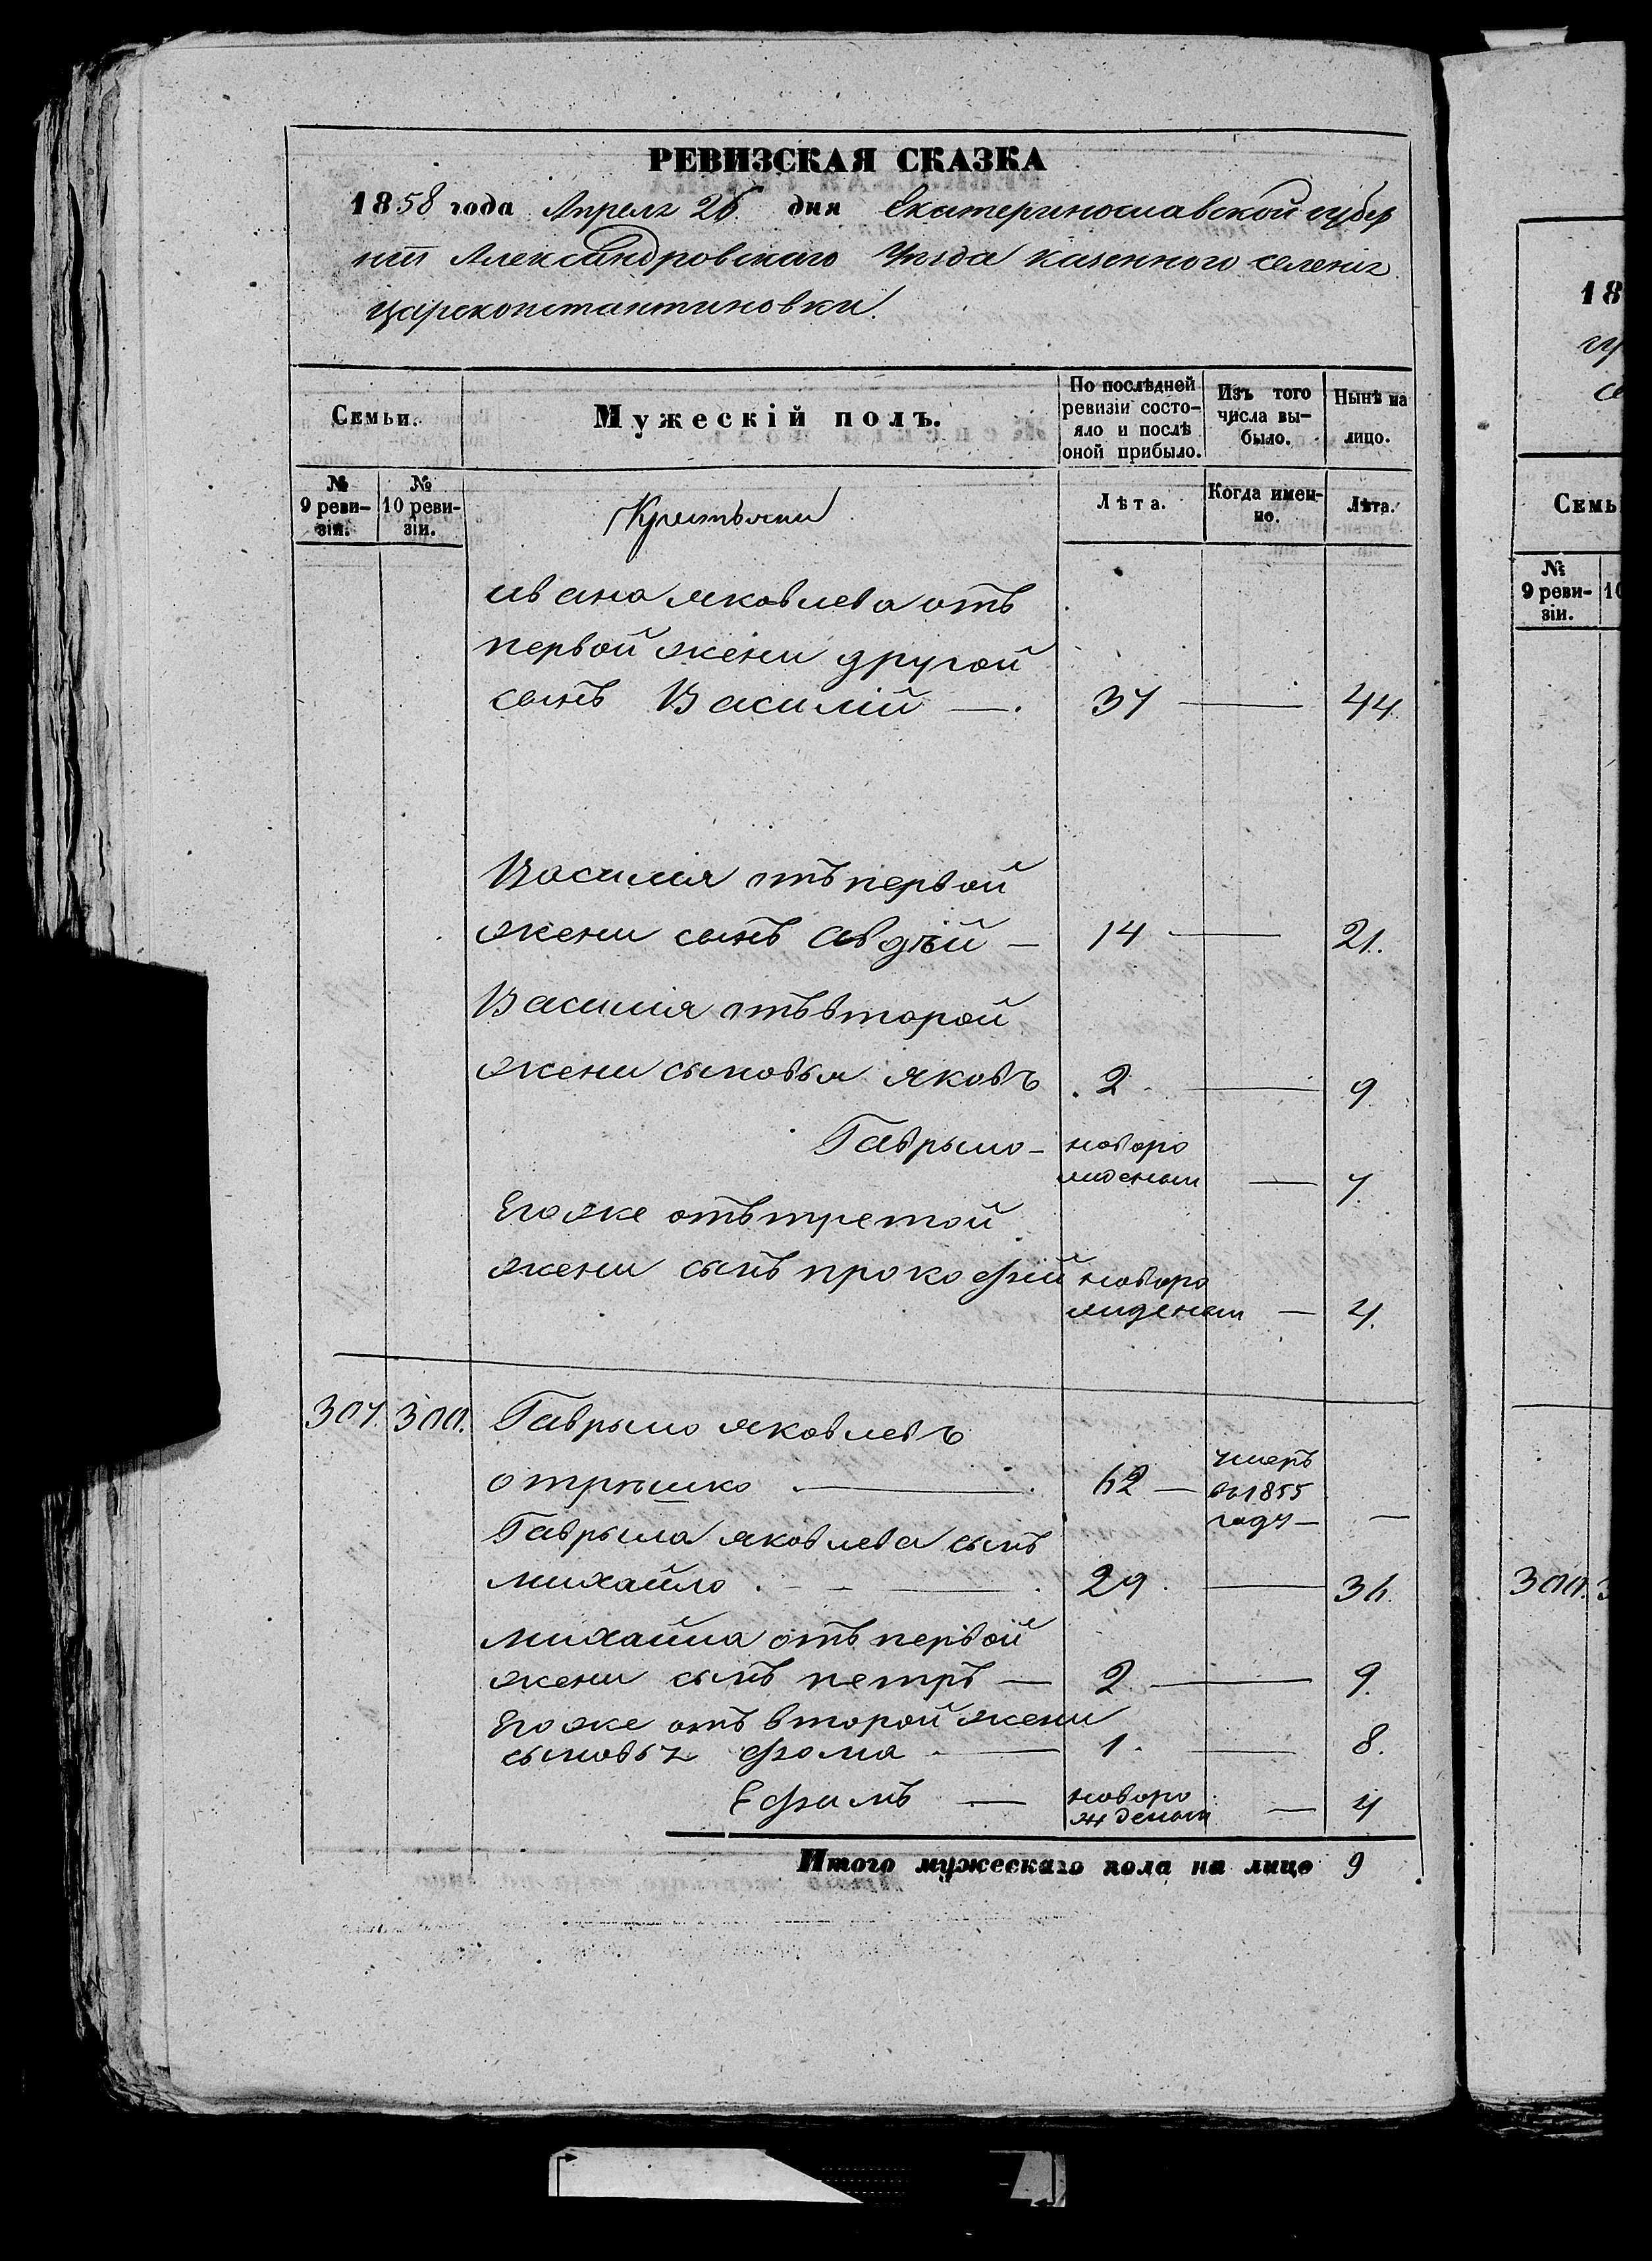 РЕВИЗСКАЯ СКАЗКА
1858 года Апреля 26 дня Екатеринославской губер
нiи Александровскаго Уезда казенного селенiя
Царсконстантиновки.
Семьи. Мужескій полъ. По послѣдней ревизіи состо-яло и послѣ оной прибыло. Изъ того числа вы-было. Нынѣ на лицо.
№ 9 реви-зіи. № 10 реви-зіи. Крестьяни Лѣта. Когда имен-но. Лѣта.
ивана яковлева отъ
первой жени другой
сынъ Василій — 37 — 44.
Василія отъ первой
жени сынъ Авдѣй — 14 — 21.
Василія отъ второй
жени сыновья яковъ 2 — 9.
Гаврыло — новоро
жденый — 7.
Егоже отъ третой
жени сынъ прокофій новоро
жиденый — 4.
307. 300. Гаврыло яковлевъ
отрышко — 62 — умеръ
въ 1855
году — —
Гаврыла яковлева сынъ
михайло — 29 — 36.
михайла отъ первой
жени сынъ петръ — 2 — 9.
Егоже отъ второй жени
сыновья фома — 1 — 8.
Ефимъ — новоро
жденый — 4
Итого мужескаго пола на лице 9
18
Семь
№ 9 реви-зіи. 10
300. 3